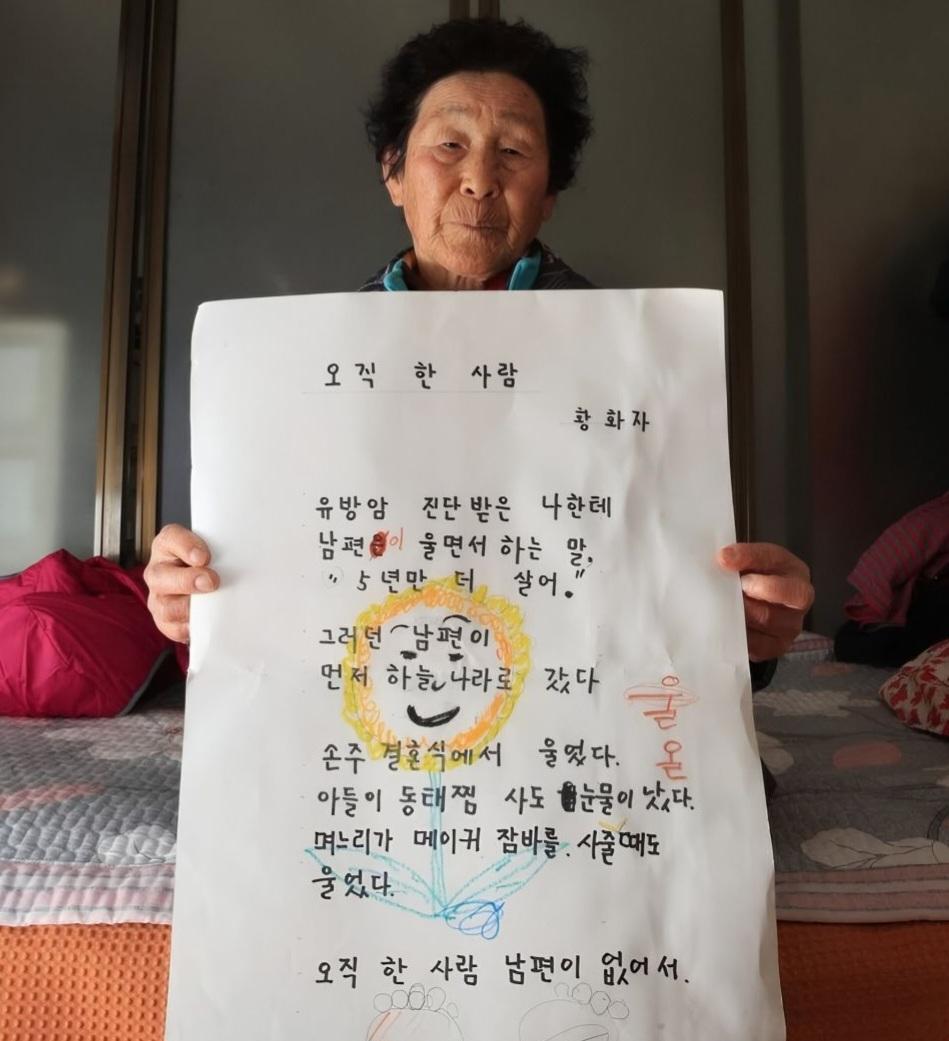 오직 한 사람
황화자
유방암 진단 받은 나한테
남편이 울면서 하는 말,
"5년만 더 살어."
그러던 남편이
먼저 하늘나라로 갔다
손주 결혼식에서 울었다.
아들이 동태찜 사도 눈물이 났다.
며느리가 메이커 잠바를 사줄 때도
울었다.
오직 한 사람 남편이 없어서.
울
온